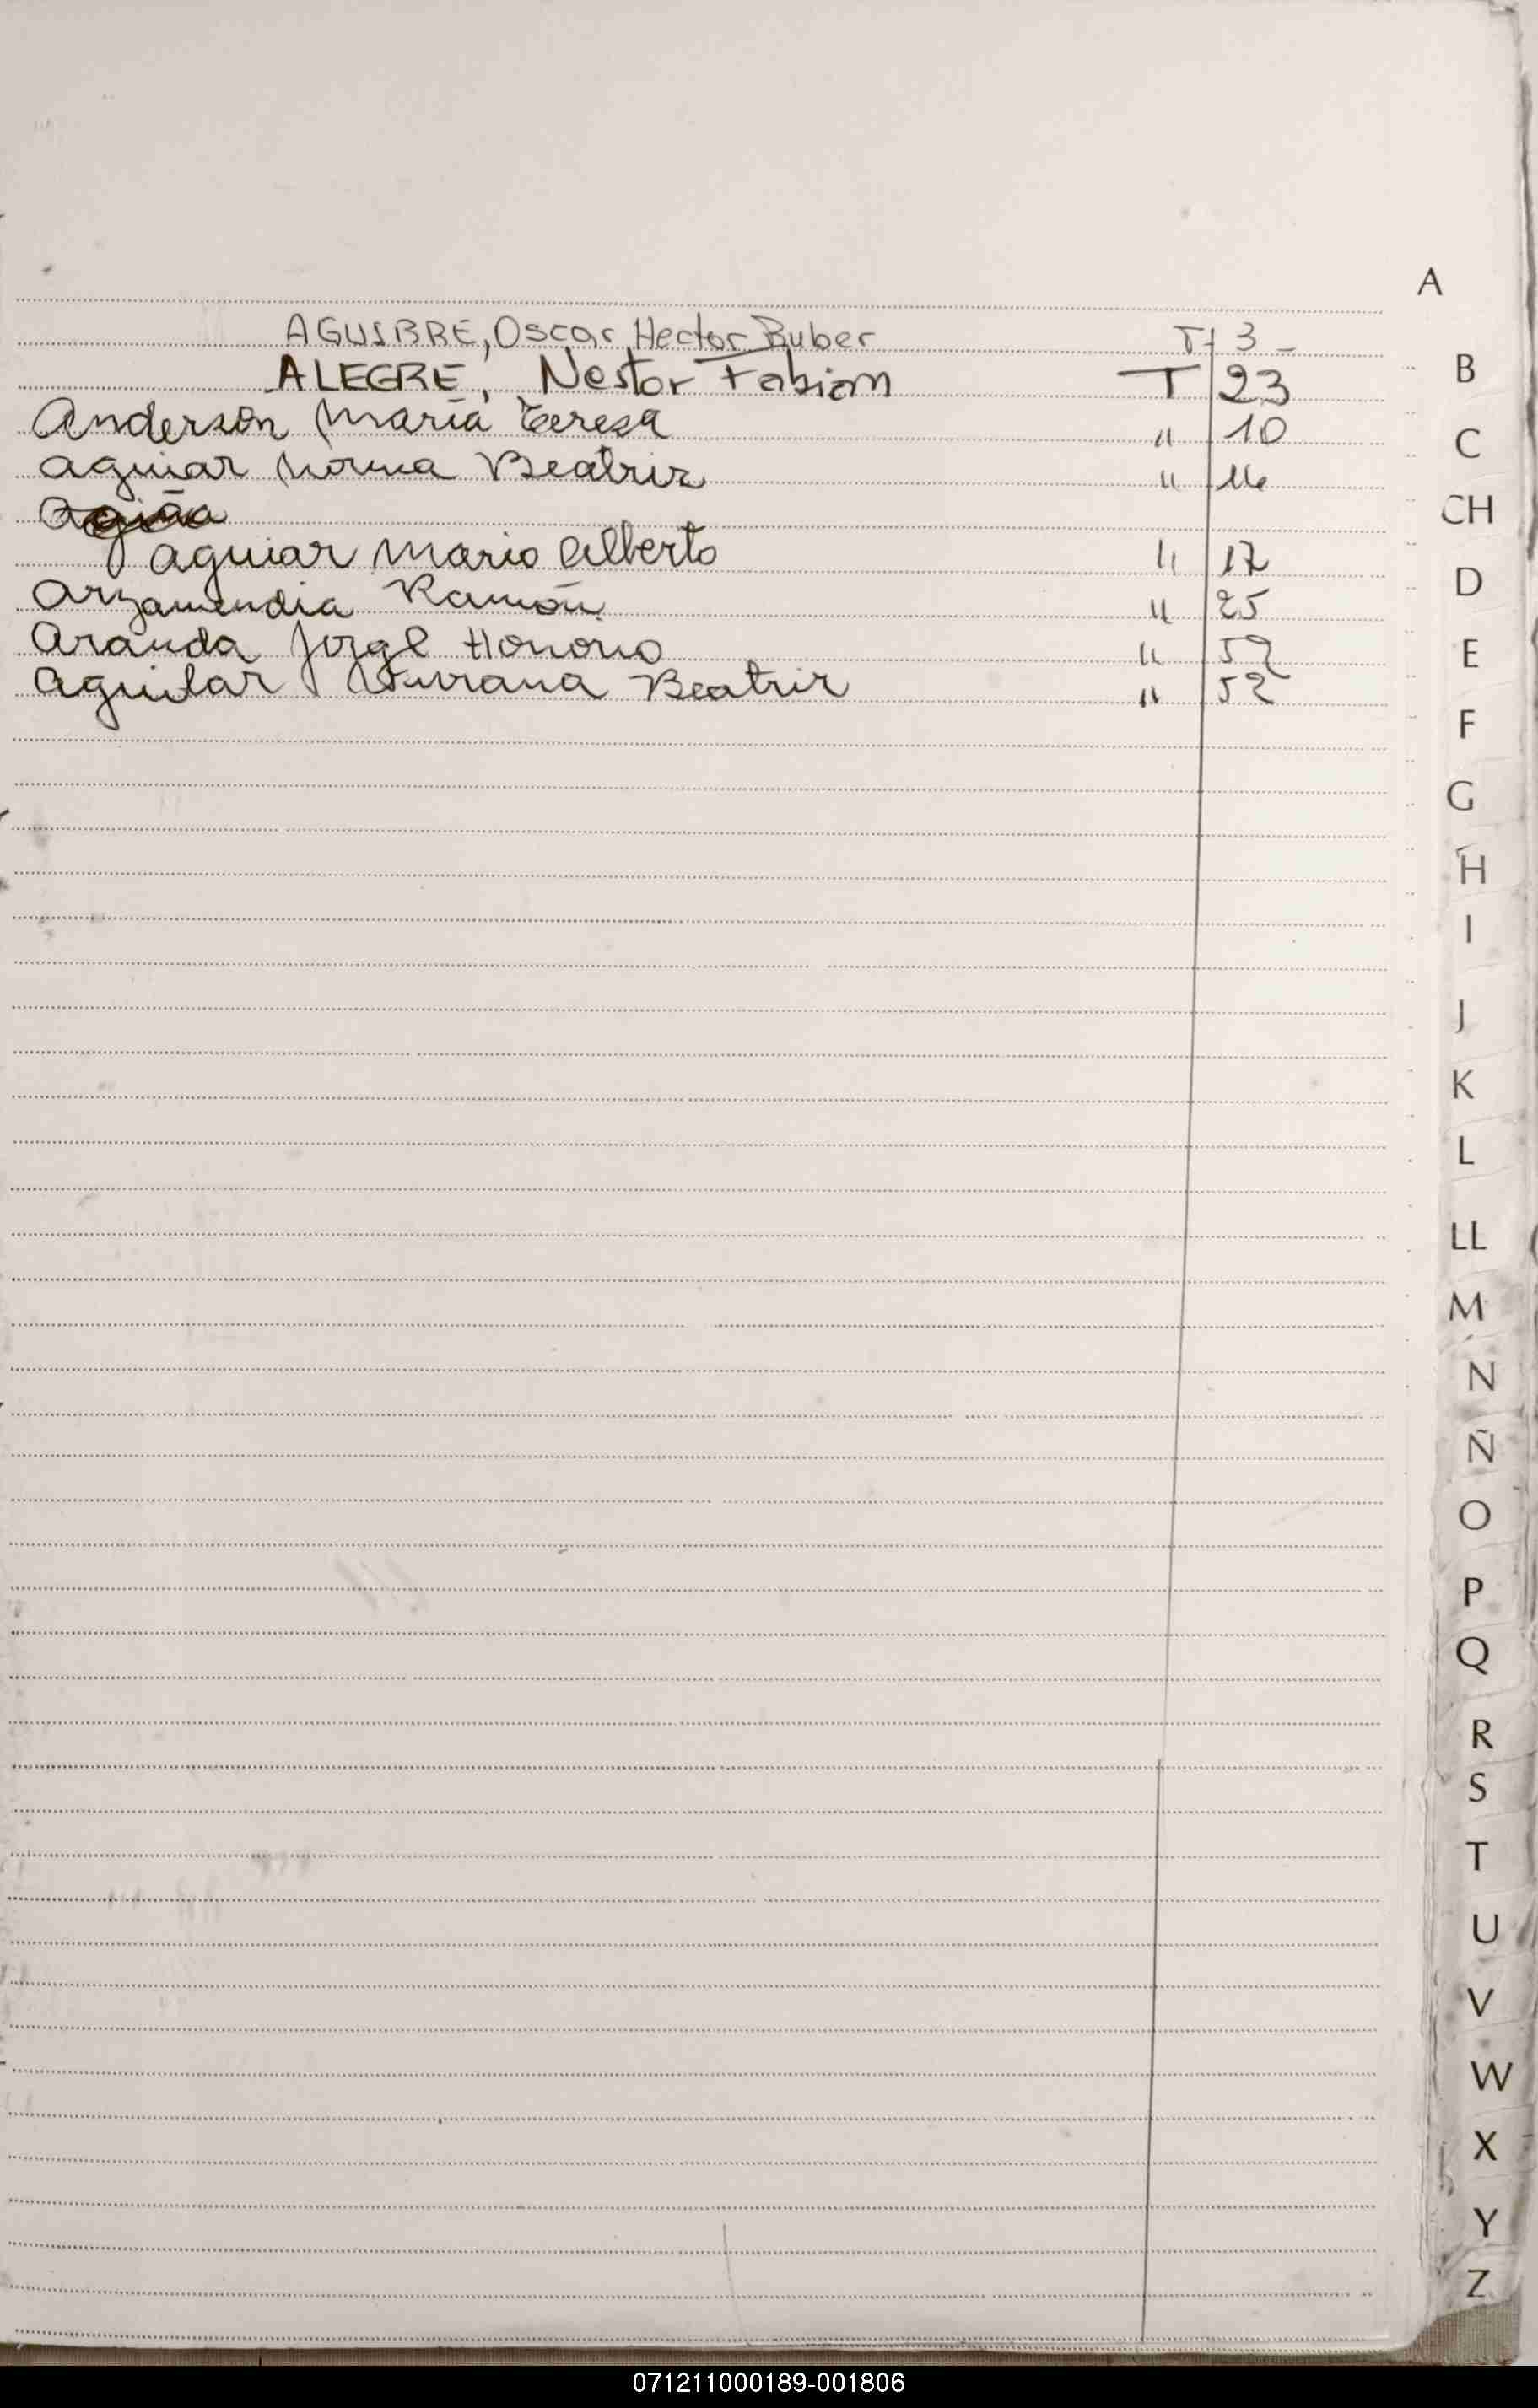 A
AGUIRRE, Oscar Hector Ruber T 3 -
ALEGRE, Nestor Fabian T 23
Anderson Maria Teresa " 10
Aguiar Norma Beatriz " 16
Aguiar Mario Alberto " 17
Arzamendia Ramón " 25
Aranda Jorge Honorio " 52
Aguilar Beatriz " 52
B
C
CH
D
E
F
G
H
I
J
K
L
LL
M
N
Ñ
O
P
Q
R
S
T
U
V
W
X
Y
Z
071211000189-001806